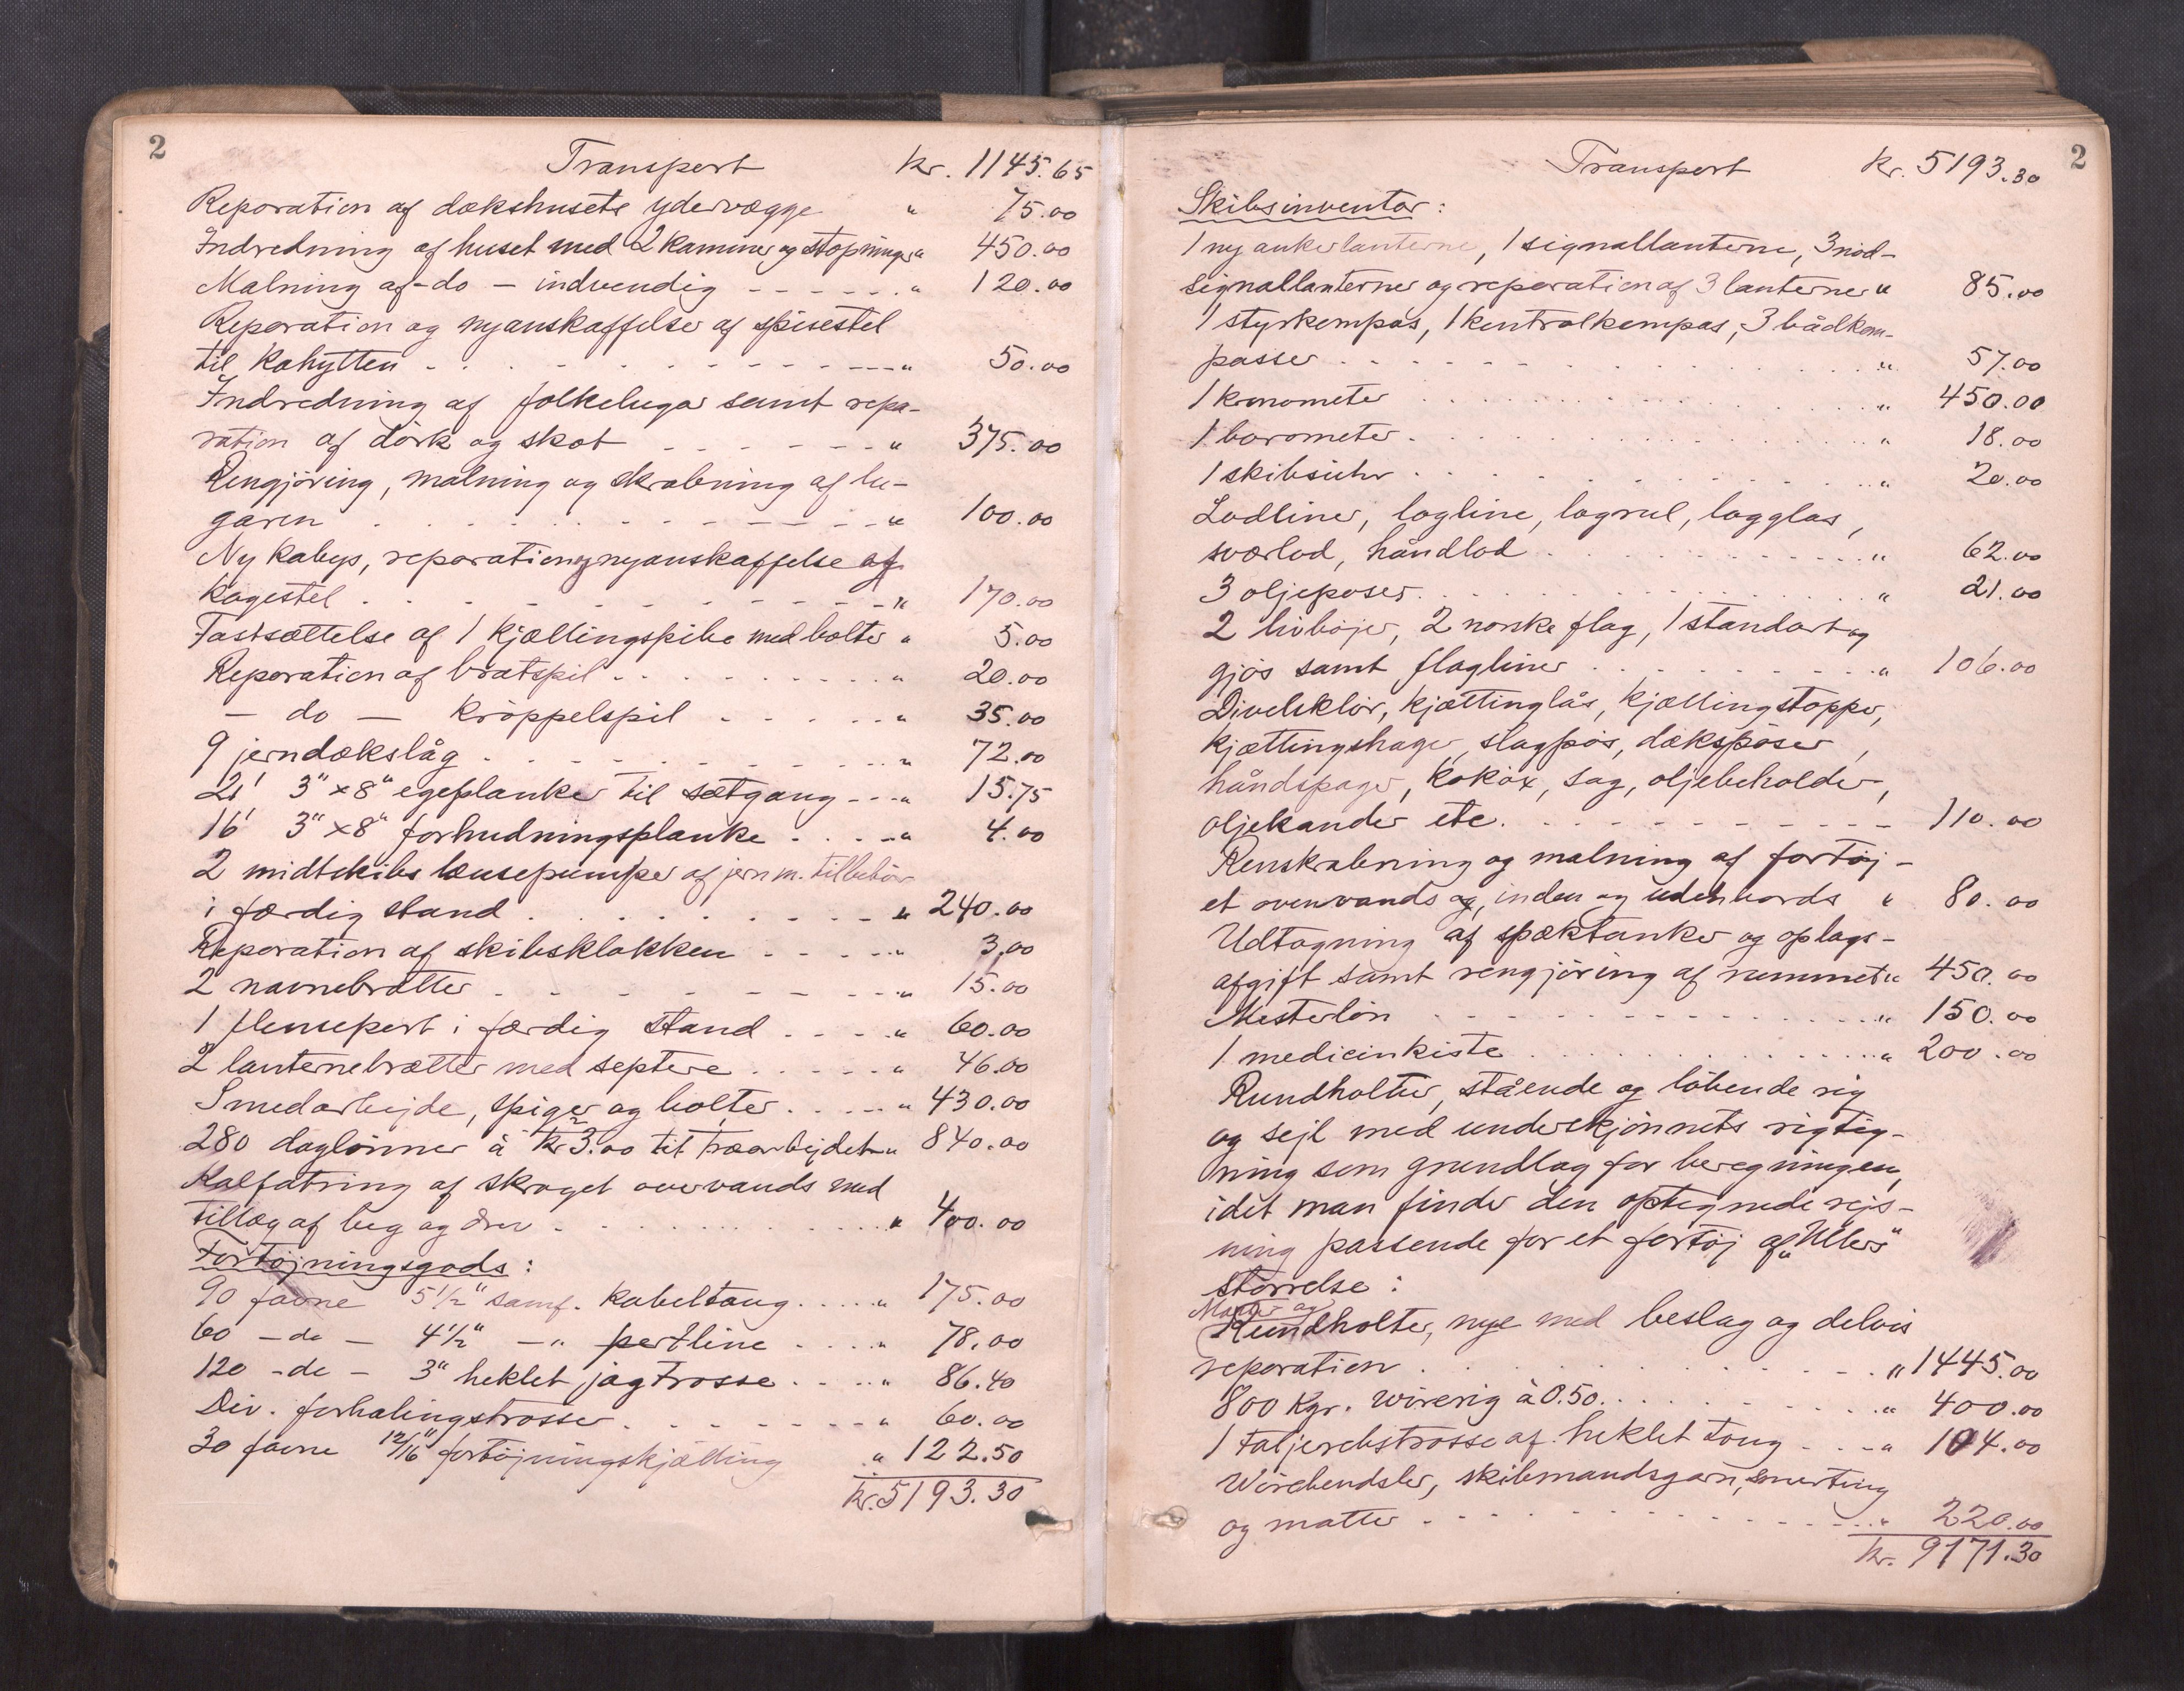 2
Transport kr. 1145.65
Reparation af dækshusets ydervægge " 75.00
Indredning af huset med 2 kaminer og stopninger " 450.00
Malning af - do - indvendig - - - - - - " 120.00
Reparation og nyanskaffelse af spisestel
til kahytten - - - - - - - - - - " 50.00
Indredning af folkelugar samt repa-
ration af dørk og skot - - - - - - " 375.00
Rengjøring, malning og skrabning af lu-
garen . . . . . . - - - - - " 100.00
Ny kabys, reparation og nyanskaffelse af
kogestel . . . - - - - - - - - " 170.00
Fastsættelse af 1 kjættingspibe med bolter " 5.00
Reparation af bratspil - . . . . . . . " 20.00
- do - krøppelspil - - - - - " 35.00
9 jerndækslåg - - - - - - - - - " 72.00
21' 3" x 8" egeplanker til sætgang - - - " 15.75
16' 3" x 8" forhudningsplanke - . . - - " 4.00
2 midtskibs lænsepumper af jern m. tilbehør
i færdig stand . . . . . . - - - " 240.00
Reparation af skibsklokken - - - - - " 3.00
2 navnebrætter - - - - - - - - - " 15.00
1 flenseport i færdig stand . . - - " 60.00
2 lanternebrætter med septere . . . . - " 46.00
Smedarbejde, spiger og bolter . . - - - " 430.00
280 daglønner à kr 3.00 til træarbejdet - " 840.00
Kalfatring af skroget overvands med
tillæg af beg og drev - . . . . . . . " 400.00
Fortøjningsgods:
90 favne 5 1/2" samf. kabeltoug . . . . . " 175.00
60 - do - 4 1/2" - " pertline . . . . " 78.00
120 - do - 3" heklet jagtrosse . . - - " 86.40
Div. forhalingstrosser . . - - - - - - " 60.00
30 favne 12/16" fortøjningskjætting " 122.50
kr. 5193.30
2
Transport kr. 5193.30
Skibsinventar:
1 ny ankerlanterne, 1 signallanterne, 3 nød-
signallanterner og reparation af 3 lanterner " 85.00
1 styrkompas, 1 kontrolkompas, 3 bådkom-
passer . . . . . . . . . . . " 57.00
1 kronometer . . . . . . . . . . " 450.00
1 barometer . . . . . . . . . . " 18.00
1 skibsuhr . . . . . . . . . . " 20.00
Lodliner, logline, logrul, logglas,
sværlod, håndlod . . . . . . . . " 62.00
3 oljeposer . . . . . . . . . . " 21.00
2 livbøjer, 2 norske flag, 1 standart og
gjøs samt flagliner . . . . . . . " 106.00
Divelsklør, kjættinglås, kjættingstopper,
kjættingshager, slagpøs, dækspøser,
håndspager, kokøx, sag, oljebeholder,
oljekander etc. . - - - - - - - - - 110.00
Renskrabning og malning af fartøj-
et ovenvands og, inden og udenbords " 80.00
Udtagning af spæktanker og oplags-
afgift samt rengjøring af rummet " 450.00
Mesterløn - - - - - - - - - - " 150.00
1 medicinkiste . . . . . . . . . " 200.00
Rundholter, stående og løbende rig
og sejl med underskjønnets rigtig-
ning som grundlag for beregningen,
idet man finder den optegnede rejs-
ning passende for et fartøj af "Ullers"
størrelse:
Master og
Rundholter, nye med beslag og delvis
reparation . . . . . . . . . " 1445.00
800 kgr. wirerig à 0.50 . . . . . . . " 400.00
1 taljerebstrosse af heklet toug - . . - " 104.00
Wirebendsler, skibmandsgarn, smerting
og matter - - - - - - - - - - " 220.00
kr. 9171.30